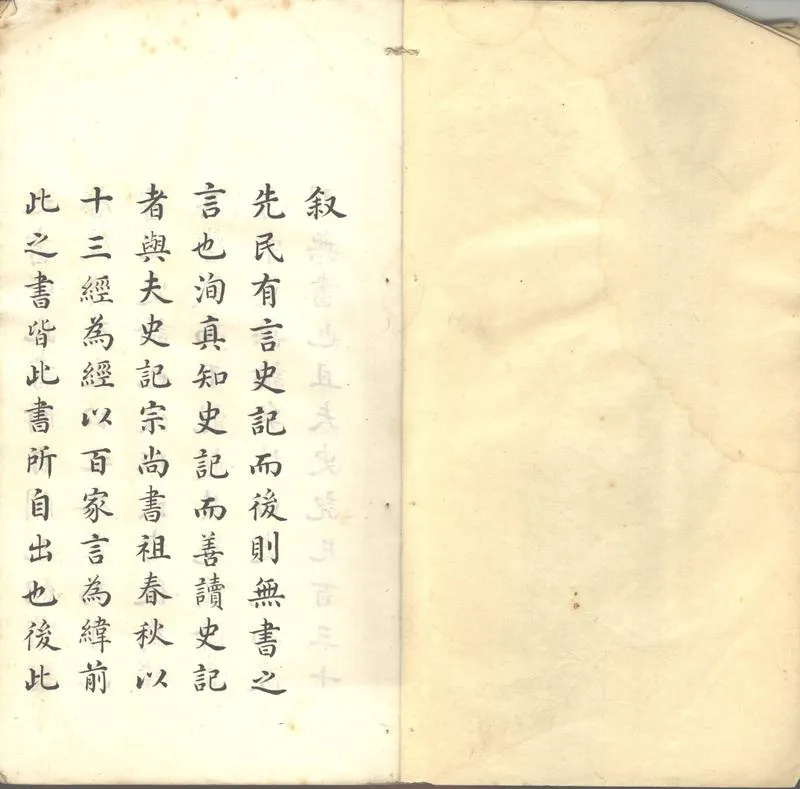 叙
先民有言史記而後則無書之
言也洵真知史記而善讀史記
者與夫史記宗尚書祖春秋以
十三經為經以百家言為緯前
此之書皆此書所自出也後此